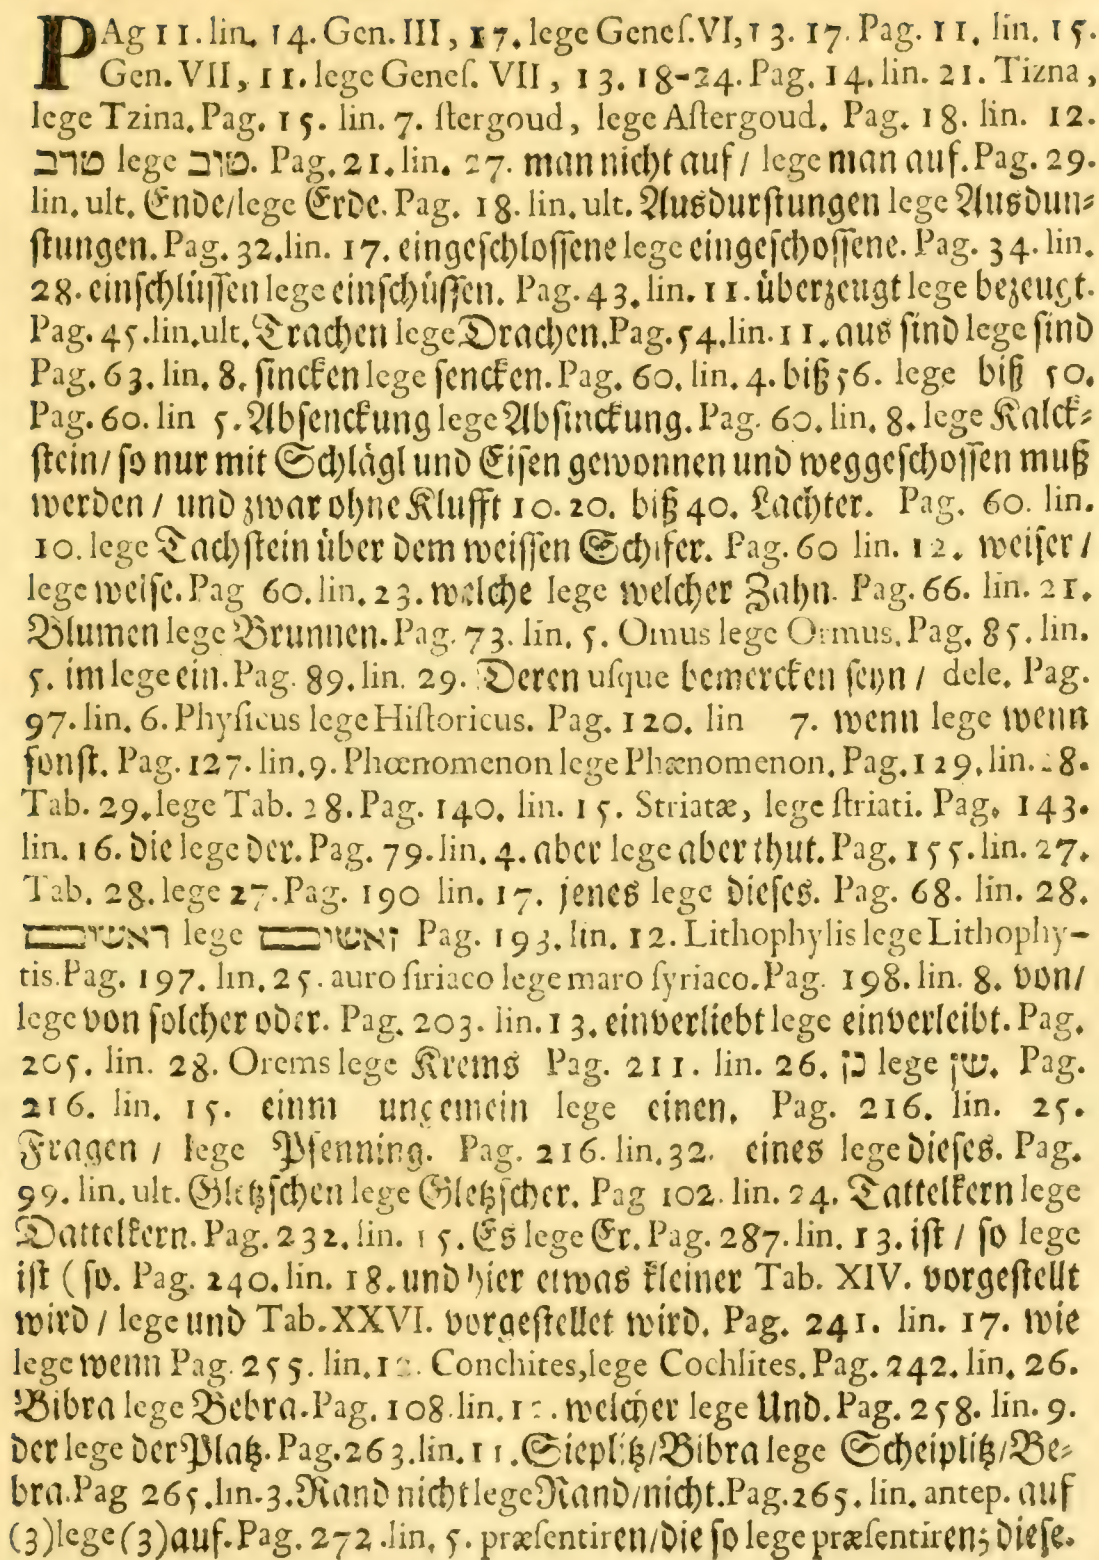 PAg 11. lin. 14. Gen. III, 17. lege Genes. VI, 13. 17. Pag. 11. lin. 15.
Gen. VII, 11. lege Genes. VII, 13. 18-24. Pag. 14. lin. 21. Tizna,
lege Tzina. Pag. 15. lin. 7. ſtergoud, lege Aſtergoud. Pag. 18. lin. 12.
טרב lege טוב. Pag. 21. lin. 27. man nicht auf / lege man auf. Pag. 29.
lin. ult. Ende/lege Erde. Pag. 18. lin. ult. Ausdurſtungen lege Ausdun⸗
ſtungen. Pag. 32. lin. 17. eingeſchloſſene lege eingeſchoſſene. Pag. 34. lin.
28. einſchlüſſen lege einſchüſſen. Pag. 43. lin. 11. überzeugt lege bezeugt.
Pag. 45. lin. ult. Trachen lege Drachen. Pag. 54. lin. 11. aus ſind lege ſind
Pag. 63. lin. 8. ſincken lege ſencken. Pag. 60. lin. 4. biß 56. lege biß 50.
Pag. 60. lin 5. Abſenckung lege Abſinckung. Pag. 60. lin. 8. lege Kalck⸗
ſtein/ ſo nur mit Schlägl und Eiſen gewonnen und weggeſchoſſen muß
werden / und zwar ohne Klufft 10. 20. biß 40. Lachter. Pag. 60. lin.
10. lege Tachſtein über dem weiſſen Schifer. Pag. 60 lin. 12. weiſer /
lege weiſe. Pag 60. lin. 23. welche lege welcher Zahn. Pag. 66. lin. 21.
Blumen lege Brunnen. Pag. 73. lin. 5. Omus lege Ormus. Pag. 85. lin.
5. im lege ein. Pag. 89. lin. 29. Deren uſque bemercken ſeyn / dele. Pag.
97. lin. 6. Phyſicus lege Hiſtoricus. Pag. 120. lin 7. wenn lege wenn
ſonſt. Pag. 127. lin. 9. Phœnomenon lege Phænomenon. Pag. 129. lin. 8.
Tab. 29. lege Tab. 28. Pag. 140. lin. 15. Striatæ, lege ſtriati. Pag. 143.
lin. 16. die lege der. Pag. 79. lin. 4. aber lege aber thut. Pag. 155. lin. 27.
Tab. 28. lege 27. Pag. 190 lin. 17. jenes lege dieſes. Pag. 68. lin. 28.
lege Pag. 193. lin. 12. Lithophylis lege Lithophy-
tis. Pag. 197. lin. 25. auro ſiriaco lege maro ſyriaco. Pag. 198. lin. 8. von/
lege von ſolcher oder. Pag. 203. lin. 13. einverliebt lege einverleibt. Pag.
205. lin. 28. Orems lege Krems Pag. 211. lin. 26. כן lege שן. Pag.
216. lin. 15. einm ungemein lege einen. Pag. 216. lin. 25.
Fragen / lege Pfenning. Pag. 216. lin. 32. eines lege dieſes. Pag.
99. lin. ult. Gletzſchen lege Gletzſcher. Pag 102. lin. 24. Tattelkern lege
Dattelkern. Pag. 232. lin. 15. Es lege Er. Pag. 287. lin. 13. iſt / ſo lege
iſt ( ſo. Pag. 240. lin. 18. und hier etwas kleiner Tab. XIV. vorgeſtellt
wird / lege und Tab. XXVI. vorgeſtellet wird. Pag. 241. lin. 17. wie
lege wenn Pag. 255. lin. Conchites, lege Cochlites. Pag. 242. lin. 26.
Bibra lege Bebra. Pag. 108. lin. welcher lege Und. Pag. 258. lin. 9.
der lege der Platz. Pag. 263. lin. 11. Sieplitz/Bibra lege Scheiplitz/Be⸗
bra. Pag 265. lin. 3. Rand nicht lege Rand/nicht. Pag. 265. lin. antep. auf
(3) lege (3) auf. Pag. 272. lin. 5. præſentiren/die ſo lege præſentiren; dieſe.